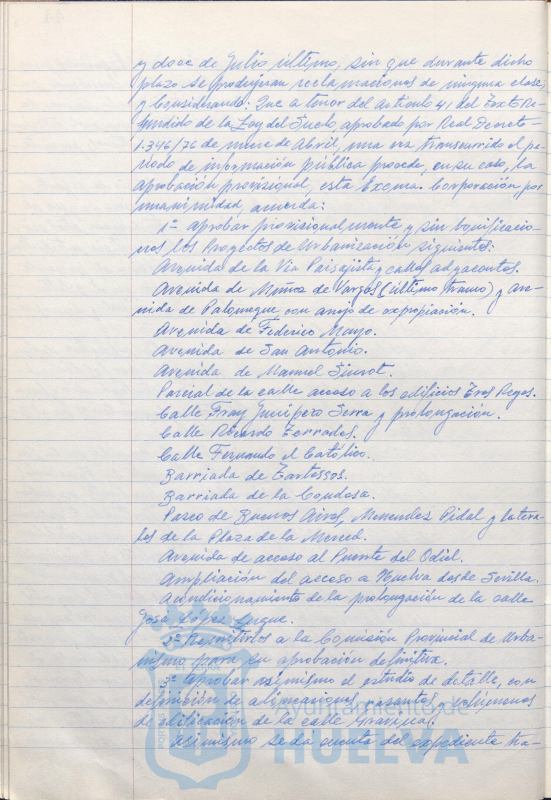 y doce de Julio último, sin que durante dicho
plazo se produjeran reclamaciones de ninguna clase;
y Considerando: Que a tenor del artículo 41 del Texto Re-
fundido de la Ley del Suelo, aprobado por Real Decreto-
1.346/76 de nueve de Abril, una vez transcurrido el pe-
ríodo de información pública procede, en su caso, la
aprobación provisional, esta Excma. Corporación, por
unanimidad, acuerda:
1º aprobar provisionalmente y sin bonificacio-
nes los Proyectos de Urbanización siguientes:
Avenida de la Vía Paisajista y calles adyacentes.
Avenida de Muñoz de Vargas (último tramo) y ave-
nida de Palomeque con anejo de expropiación.
Avenida de Federico Mayo.
Avenida de San Antonio.
Avenida de Manuel Siurot.
Parcial de la calle acceso a los edificios Tres Reyes.
Calle Fray Junípero Serra y prolongación.
Calle Ricardo Terrades.
Calle Fernando el Católico.
Barriada de Tartessos.
Barriada de la Condesa.
Paseo de Buenos Aires, Menendez Pidal y latera-
les de la Plaza de la Merced.
Avenida de acceso al Puente del Odiel.
Ampliación del acceso a Huelva desde Sevilla.
Acondicionamiento de la prolongación de la calle
José López Luque.
2º Remitirlos a la Comisión Provincial de Urba-
nismo para su aprobación definitiva.
3º aprobar asimismo el estudio de detalle, con
definición de alineaciones, rasantes y volúmenes
de edificación de la calle Gravina.
Asimismo se da cuenta del expediente tra-
Ayuntamiento de
HUELVA